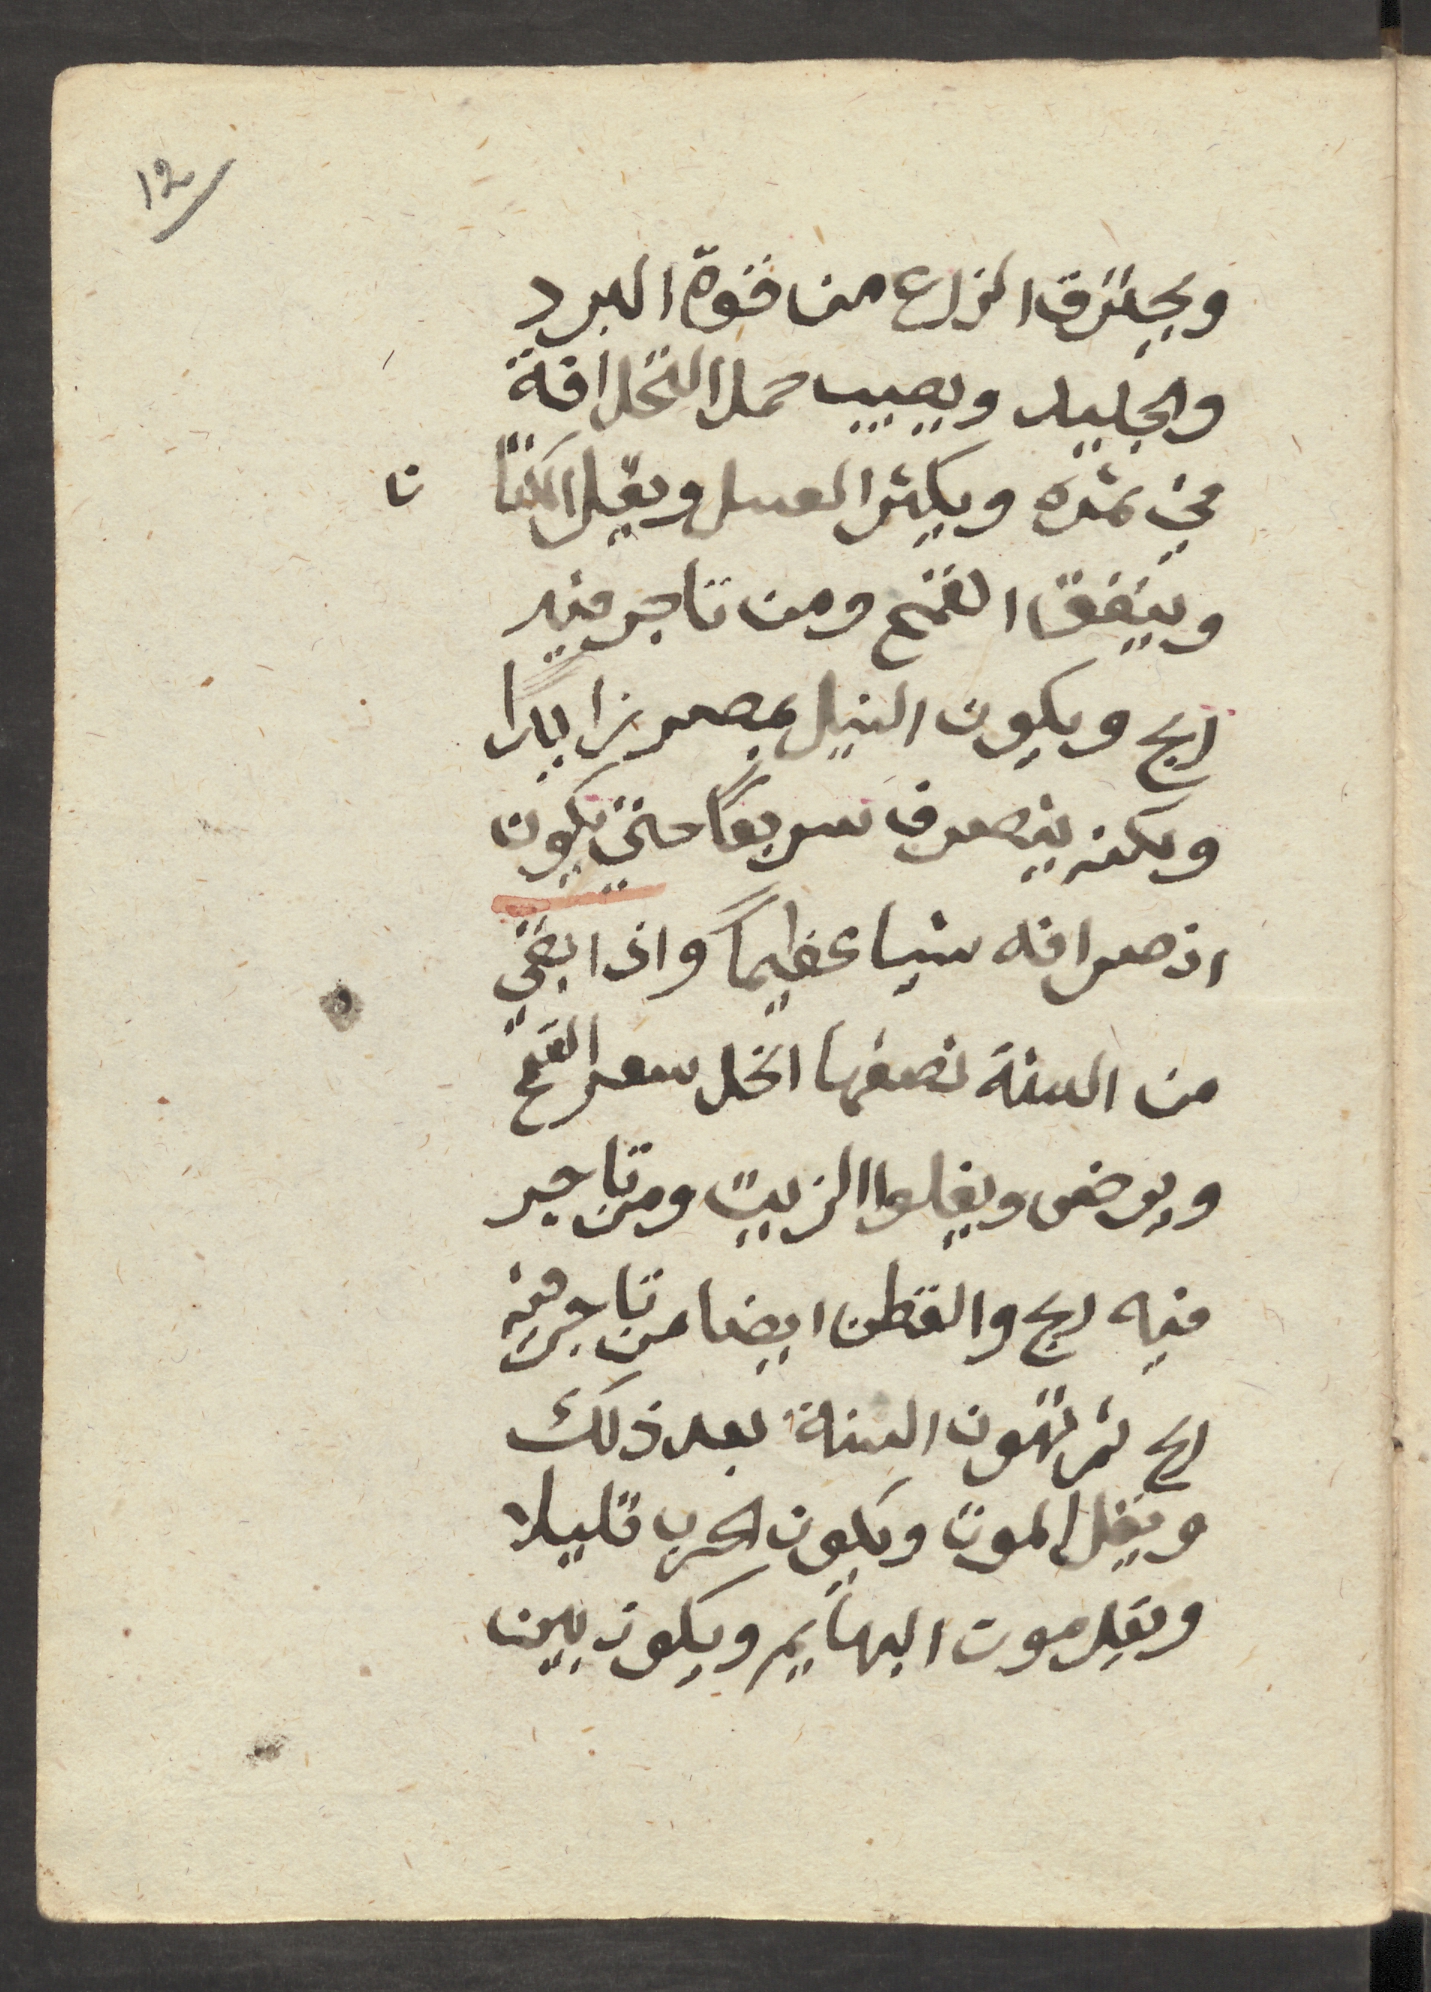 12
ويحترق الزرع من قوة البرد
والجليد ويصيب حمل النخل افة
في ثمره ويكثر العسل ويقل الكتا ن
وينفق القمح ومن تاجر فيه
ربح ويكون النيل بمصر زايدًا
ولكنه ينصرف سريعًا حتي يكون
انصرافه شيا عظيمًا واذا بقي
من السنة نصفها انحل سعر القمح
ويرخص ويغلوا الزيت ومن تاجر
فيه ربح والقطن ايضا من تاجر فيه
ربح ثم تهون السنة بعد ذلك
ويقل الموت ويكون الحرب قليلا
ويقل موت البهايم ويكون بين